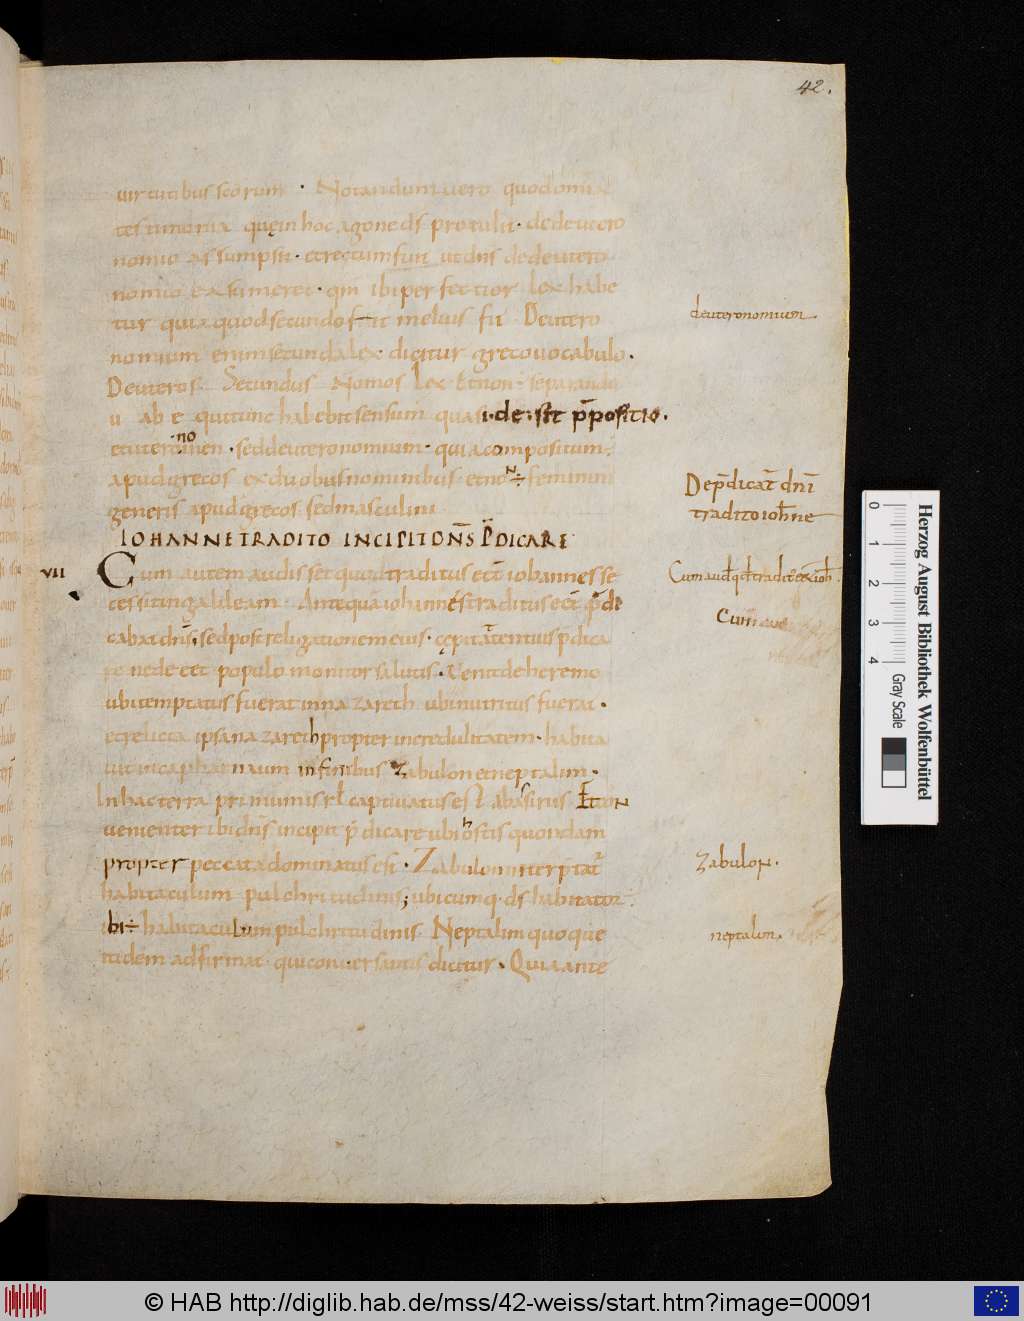 42.
uirtutibus scōrum · Notandum uero quod omnia
testimonia quę in hoc agone dś protulit · de deutero
nomio assumpsit · et rectum fuit ut dńs de deutero
nomio existimeret · qm̄ ibi perfectior lex habe
tur quia quod secundo fit melius fit Deutero
deuteronomium.
nomium enim secunda lex dicitur greco uocabulo.
Deuteros. Secundus Nomos Lex Et non ÷ separandū
u ab e qui tunc habebit sensum quasi .i. de. sit p̄positio.
no
et uteronien · sed deuteronomium · quia compositum ÷
apud grecos ex duobus nominibus et non ÷ feminini
Dep̄dicat̄ dn̄i
generis apud grecos sed masculini
tradito ioh̄ne
IOHANNE TRADITO INCIPIT DN̄S P̄DICARE
VII
Cum autem audisset quod traditus eēt iohannes se
cessit in galileam · Antequā iohannes traditus eēt p̄di
cabat dn̄s; sed post religationem eius · cępit attentius p̄dica
re ne deeēt populo monitor salutis · Venit de heremo
ubi temptatus fuerat in nazareth ubi nutritus fuerat ·
et relicta ipsa nazareth propter incredulitatem · habita
uit in capharnaum in finibus zabulon et neptalim ·
In hac terra primum isrł captiuatus est ab assirus. Et con
uenienter ibi dn̄s incipit p̄dicare ubi hostis quondam
propter peccata dominatus est · Zabulon interp̄tat̄
zabulon.
habitaculum pulchritudinis; ubicumq· dś habitator
ibi ÷ habitaculum pulchritudinis Neptalim quoque
neptalim.
itidem adfirmat qui conuersantis dicitur · Quia ante
Herzog August Bibliothek Wolfenbüttel
0 1 2 3 4 Gray Scale
© HAB http://diglib.hab.de/mss/42-weiss/start.htm?image=00091